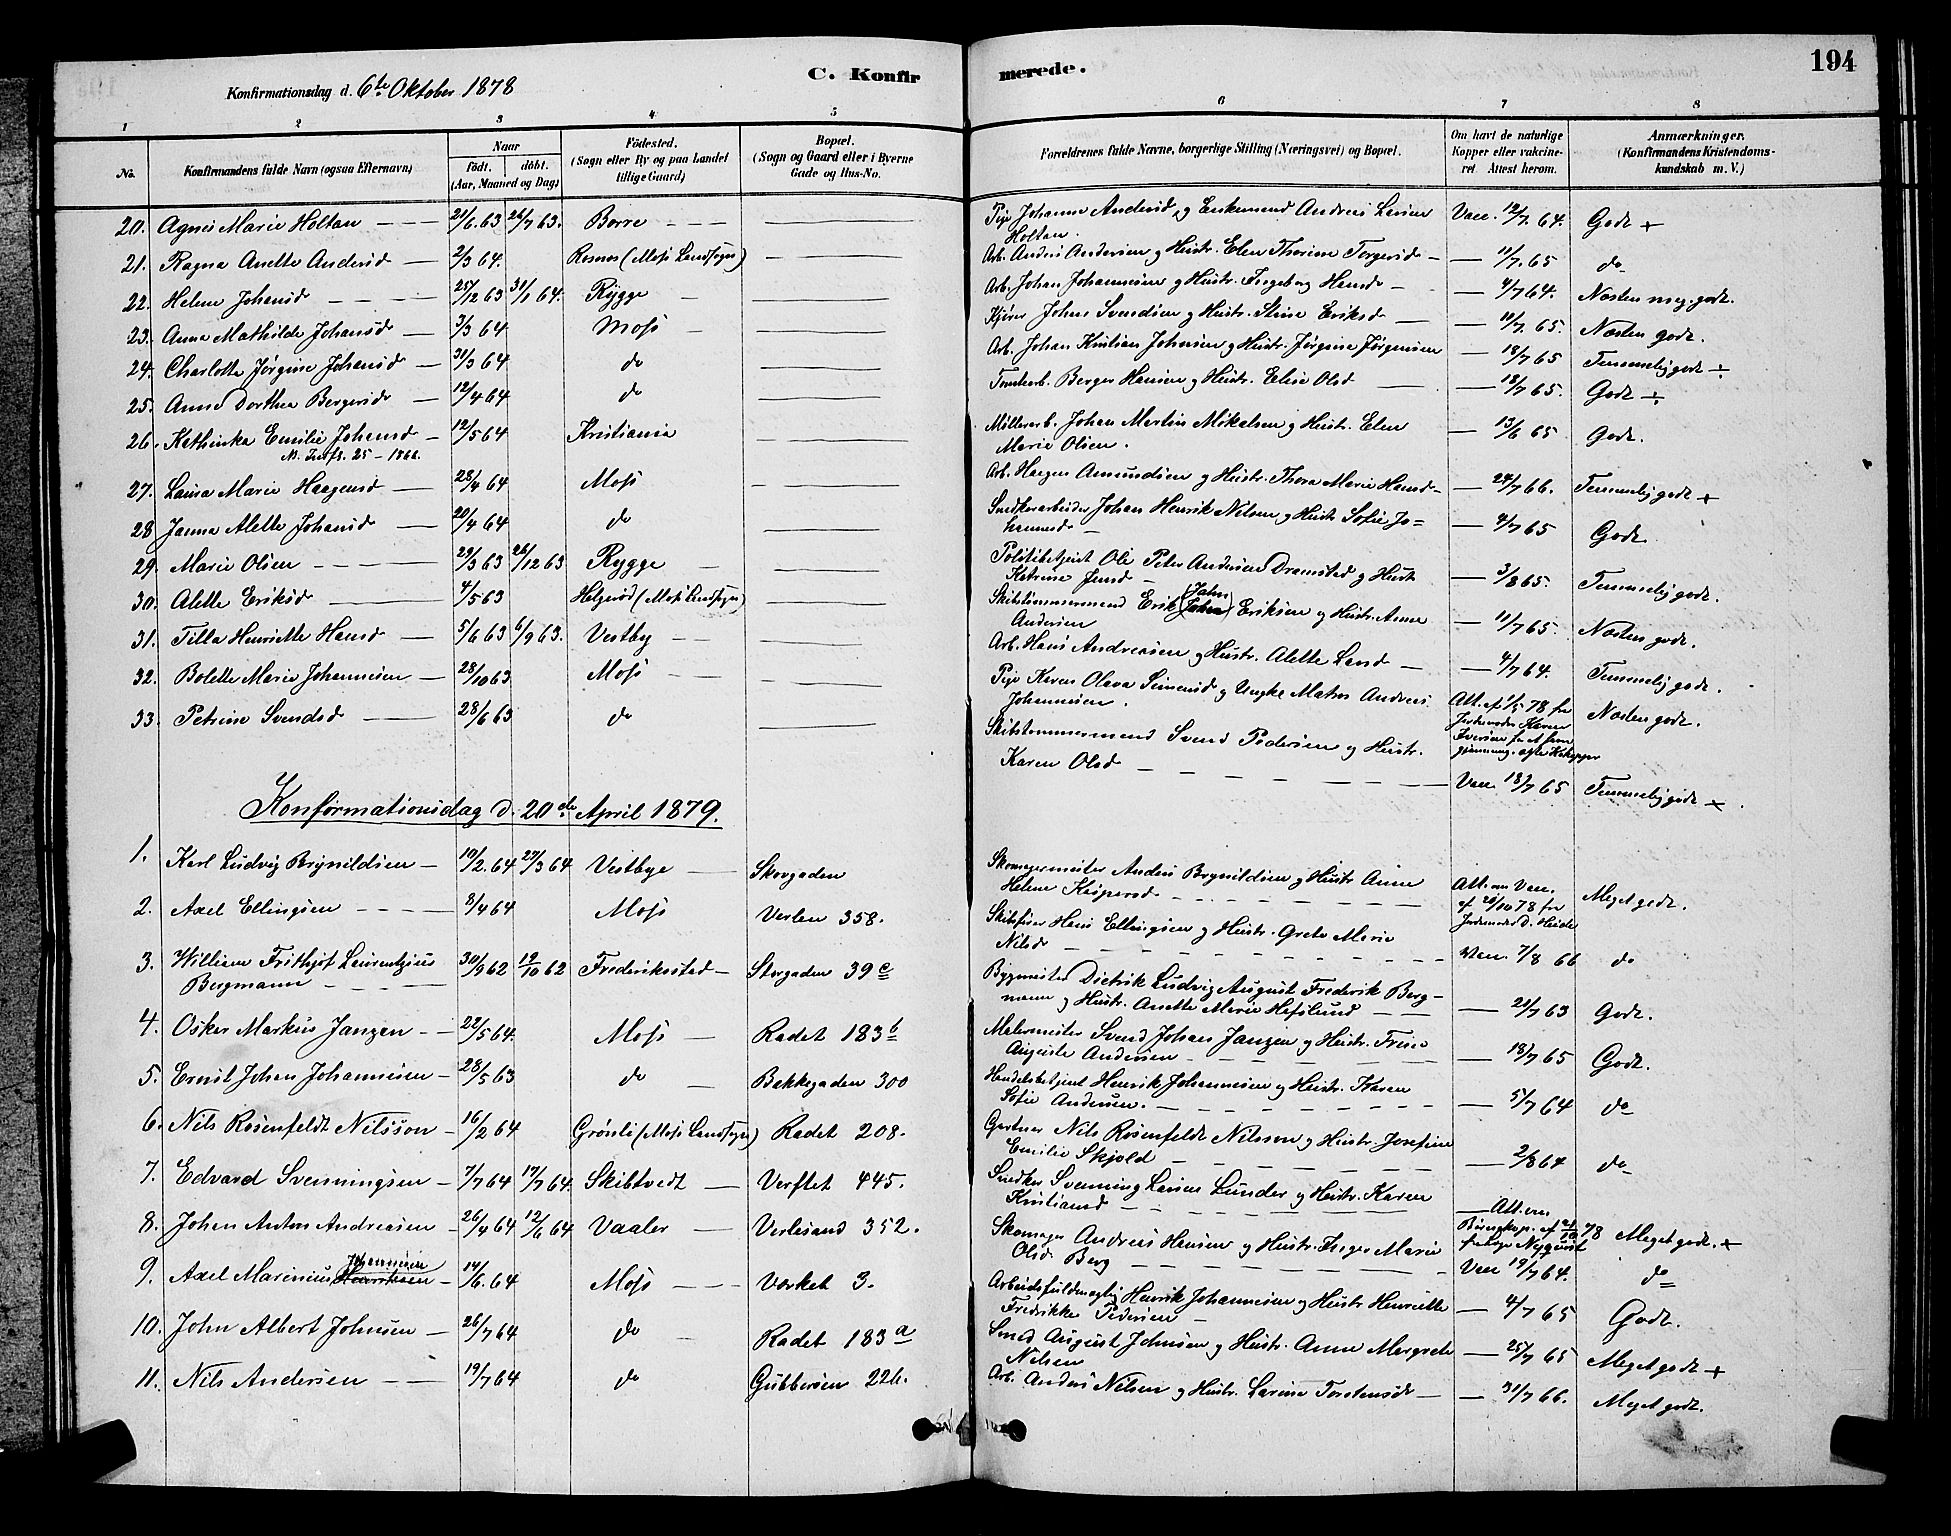 194
C. Konfirmerede.
Konfirmationsdag d. 6te Oktober 1878
1 2 3 4 5 6 7 8
No. Konfirmandens fulde Navn (ogsaa Efternavn) Naar Födt. döbt. (Aar, Maaned og Dag) Födested. (Sogn eller By og paa Landet tillige Gaard) Bopæl. (Sogn og Gaard eller i Byerne Gade og Hus-No. Forældrenes fulde Navne, borgerlige Stilling (Næringsvei) og Bopæl. Om havt de naturlige Kopper eller vakcineret. Attest herom. Anmærkninger. (Konfirmandens Kristendomskundskab m. V.)
20. Agnes Marie Holtan 21/6.63 26/7 63. Borre Pige Johanne Andersd. og Enkemand Andreas Larsen Holtan. Vacc. 12/7.64. Godt +
21. Ragna Anette Andersd 2/3 64. Rosnes (Moss Landsogn) Arb. Anders Andersen og Hustr. Elen Thorine Torgersd 11/7.65 do
22. Helene Johansd 25/12 63 31/1 64. Rygge Arb. Johan Johannesen og Hustr. Ingeborg Hansd 4/7 64. Næsten meg. godt.
23. Anna Mathilde Johansd 3/3 64 Moss Kjører Johans Svendsen og Hustr. Stine Eriksd 10/7. 65. Næsten godt.
24. Charlotte Jørgine Johansd 31/3 64 do Arb. Johan Kristian Johnsen og Hustr. Jørgine Jørgensen 18/7 65 Temmelig godt ÷
25. Anne Dorthea Bergersd 12/4 64 do Tomtearb. Berger Hansen og Hustr. Elise Olsd 18/7 65. Godt ÷
26. Kathinka Emilie Johansd 12/5 64 Kristiania Möllerarb. Johan Martin Mikelsen og Hustr. Elen Marie Olsen. 13/6 65 Godt.
27. Laura Marie Haagensd 28/4 64 Moss Arb. Haagen Amundsen og Hustr. Thora Marie Hansd 24/7 66. Temmelig godt +
28 Janna Alette Johansd 20/4 64 do Snedkerarbeider Johan Henrik Nilsen og Hustr Sofie Johannesd 4/7 65 Godt
29. Marie Olsen 29/3 63 26/12 63 Rygge Politibetjent Ole Peter Andersen Dramstad og Hustr. Katrine Jensd 3/8 65. Temmelig godt.
30. Alette Eriksd 4/5 63 Helgerød (Moss Landsogn) Skibstømmermand Erik (John) Eriksen og Hustr. Anne Andersen 11/7 65. Næsten godt.
31. Tilla Henriette Hansd 5/6 63 6/9 63. Vestby Arb. Hans Andreasen og Hustr. Alette Lund 4/7 64. Temmelig godt.
32. Bolette Marie Johannesen 28/10 63 Moss Pige Karen Olava Simensd og Ungka Matros Andreas Johannesen. Att. af 1/5 78 fra Jordemoder Karen Iversen Næsten godt.
33. Petrine Svendsd 28/6 63 do Skibstømmermand Svend Pedersen og Hustr. Karen Olsd Vacc. 18/7 65 Temmelig godt +
Konfirmationsdag d. 20de April 1879.
1. Karl Ludvig Brynildsen 10/2.64 27/3 64 Vestbye Skovgaden Skomagermester Anders Brynildsen og Hustr Anne Helene Kaspersd Att. om Vacc. af 28/10 78 fra Jordemoder D. Heide Meget godt.
2. Axel Ellingsen 8/4 64 Moss Verlen 358. Skibsfører Hans Ellingsen og Hustr. Grete Marie Nilsd Vacc. 7/8 66 do
3. William Frithjof Laurentzius Bergmann 30/9 62 19/10 62 Frederiksstad Storgaden 39 c Bygmester Dietrik Ludvig August Frederik Bergmann og Hustr. Anette Marie Hafslund 21/7 63 Godt.
4. Oskar Markus Janzen 22/5 64. Moss Radet 183 b Malermester Svend Johan Janzen og Hustr. Auguste Andersen 18/7 65 Godt.
5. Ernst Johan Johannesen 28/5 63 do Bakkegaden 300 Handelsbetjent Henrik Johannesen og Hustr. Karen Sofie Andersen. 5/7 64 do
6. Nils Rosenfeldt Nilsson 16/2 64 Grønli (Moss Landsogn) Radet 208. Gartner Nils Rosenfeldt Nilsson og Hustr. Josefine Emilie Skjold 2/8 64 do
7. Edvard Svenningsen 7/7 64 17/7 64. Skibtvedt Verftet 445. Snedker Svenning Larsen Lunder og Hustr. Karen Kristiansd Att. om af 78 fra Læge Nyquist Meget godt. +
8. Johan Anton Andreasen 26/4 64 12/6 64 Vaaler Verlesand 352. Skomager Andreas Hansen og Hustr. Inger Marie Olsd. Berg Vacc 19/7 64. do
9. Axel Marinius Johannesen 14/6. 64 Moss Værket 3. Arbeidsfuldmægtig Henrik Johannesen og Hustr Henriette Fredrikke Pedersen 4/7 65 Godt.
10. John Albert Johnsen 26/7 64 do Radet 183 a Smed August Johnsen og Hustr. Anne Margrete Nilsen 25/7 65 Meget godt +
11. Nils Andersen 19/7 64 do Gubberoen 226. Arb. Anders Nilsen og Hustr. Larine Torstensd 31/7 66. Meget godt.